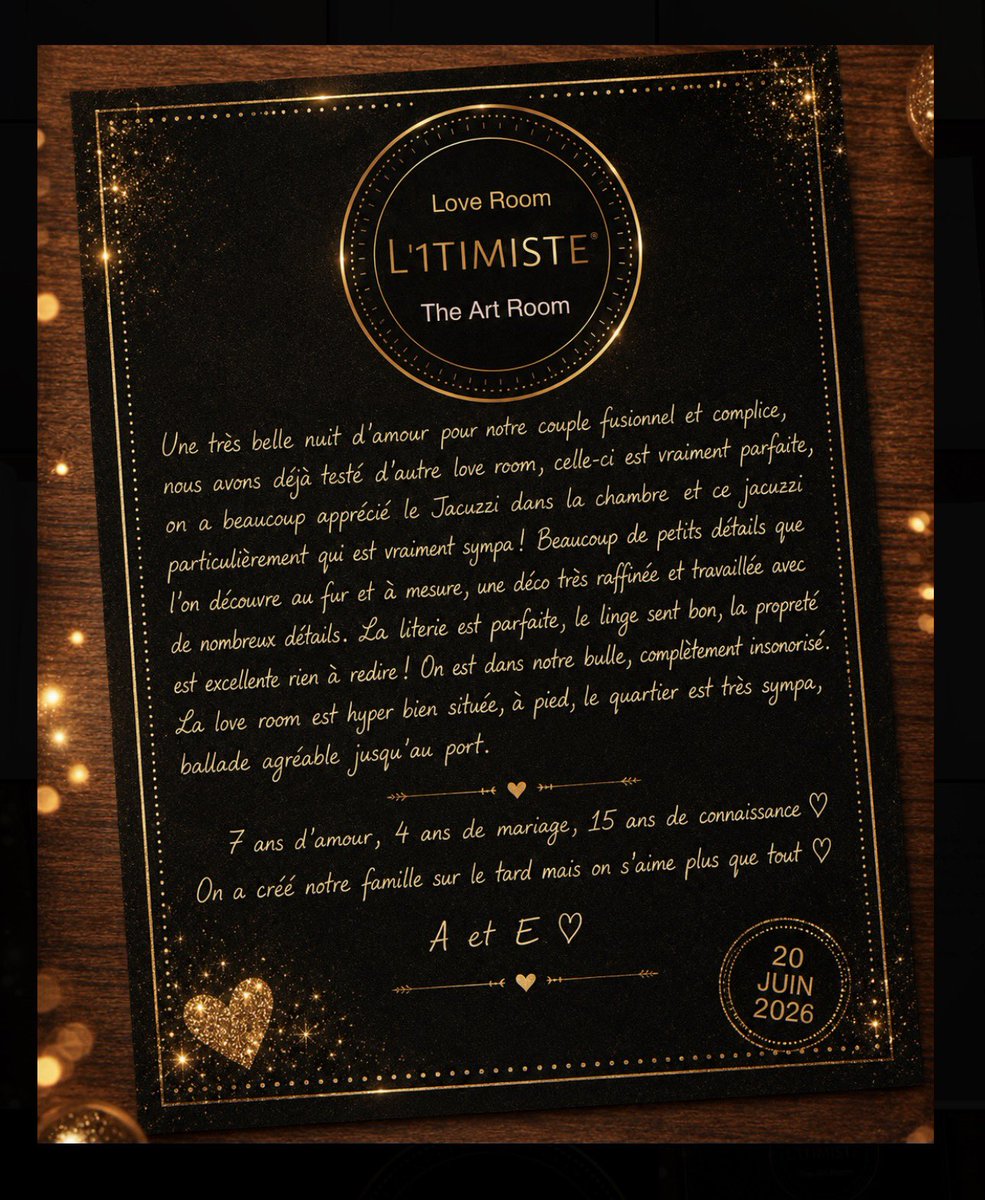 Love Room
L'1TIMISTE®
The Art Room
Une très belle nuit d'amour pour notre couple fusionnel et complice,
nous avons déjà testé d'autre love room, celle-ci est vraiment parfaite,
on a beaucoup apprécié le Jacuzzi dans la chambre et ce jacuzzi
particulièrement qui est vraiment sympa ! Beaucoup de petits détails que
l'on découvre au fur et à mesure, une déco très raffinée et travaillée avec
de nombreux détails. La literie est parfaite, le linge sent bon, la propreté
est excellente rien à redire ! On est dans notre bulle, complètement insonorisé.
La love room est hyper bien située, à pied, le quartier est très sympa,
ballade agréable jusqu'au port.
7 ans d'amour, 4 ans de mariage, 15 ans de connaissance ♡
On a créé notre famille sur le tard mais on s'aime plus que tout ♡
A et E ♡
20
JUIN
2026